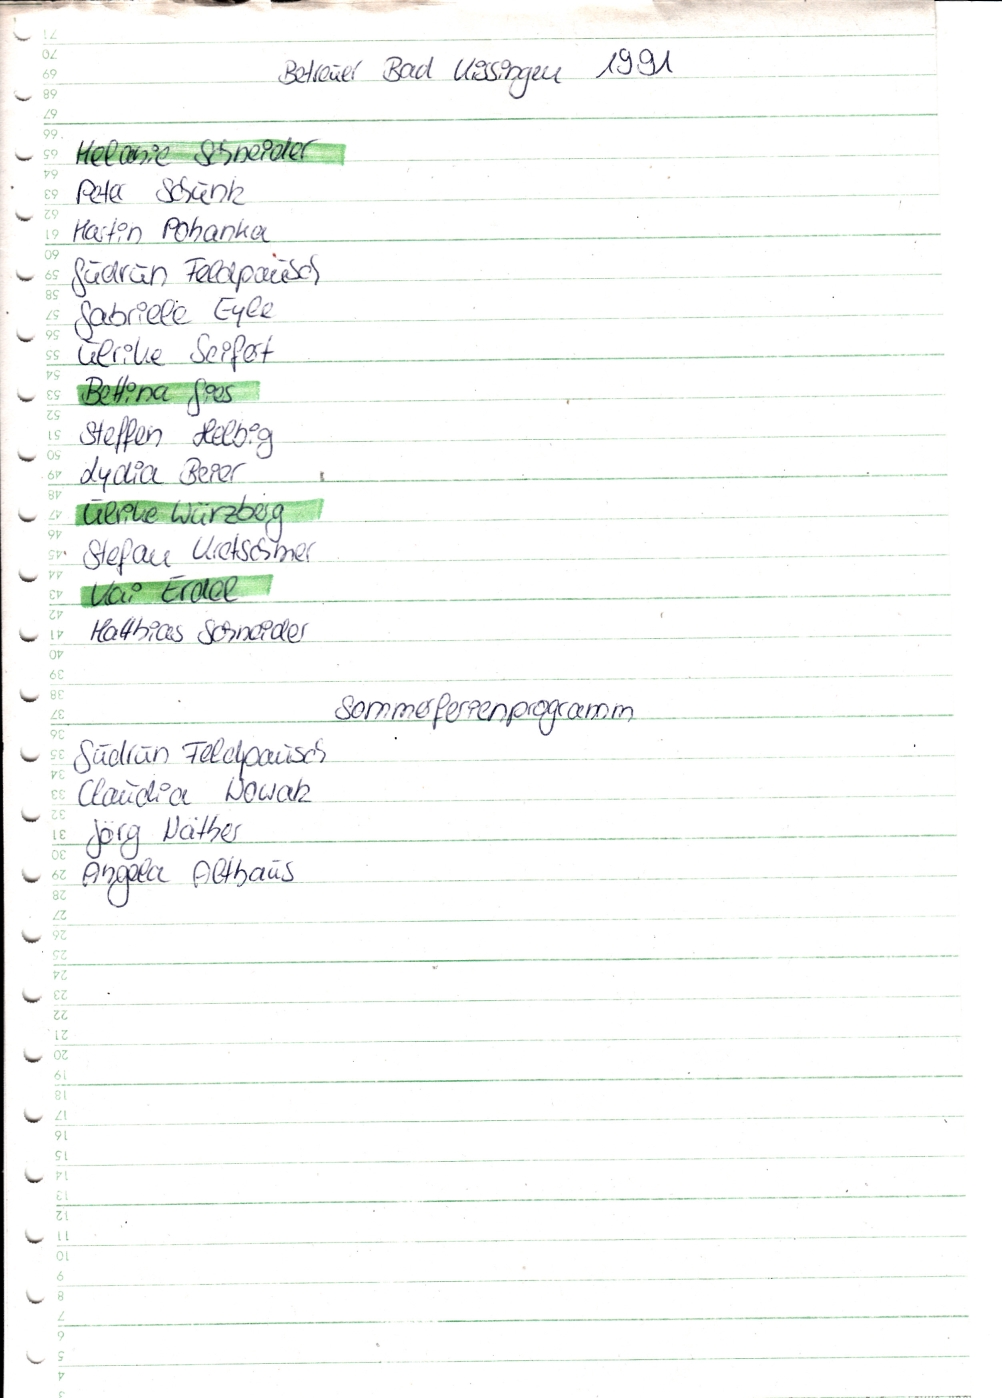 Betreuer Bad Kissingen 1991
Melanie Schneider
Peter Schunk
Martin Pohanka
Gudrun Feldpausch
Gabriele Eyle
Ulrike Seifert
Bettina Gies
Steffen Helbig
Lydia Beier
Ulrike Würzberg
Stefan Kretschmer
Kai Erdel
Matthias Schneider
Sommerferienprogramm
Gudrun Feldpausch
Claudia Nowak
Jörg Näther
Angela Althaus